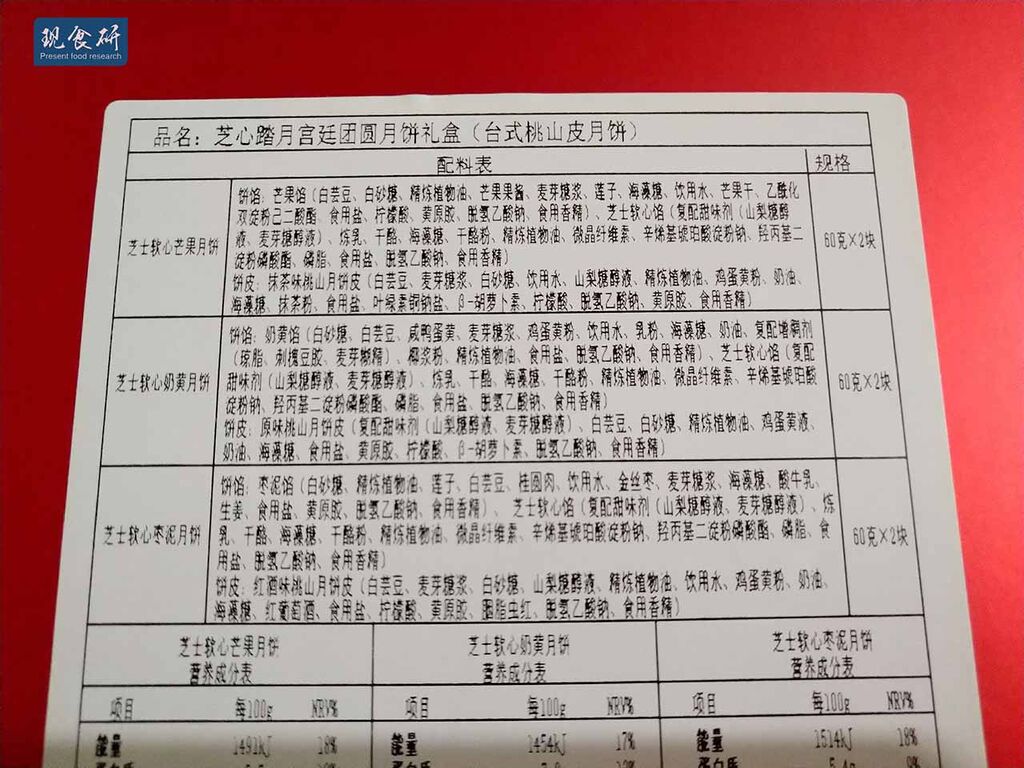 现食研
Present food research
品名：芝心踏月宫廷团圆月饼礼盒（台式桃山皮月饼）
配料表
规格
芝士软心芒果月饼
饼馅：芒果馅（白芸豆、白砂糖、精炼植物油、芒果果酱、麦芽糖浆、莲子、海藻糖、饮用水、芒果干、乙酰化
双淀粉己二酸酯、食用盐、柠檬酸、黄原胶、脱氢乙酸钠、食用香精）、芝士软心馅（复配甜味剂（山梨糖醇
液、麦芽糖醇液）、炼乳、干酪、海藻糖、干酪粉、精炼植物油、微晶纤维素、辛烯基琥珀酸淀粉钠、羟丙基二
淀粉磷酸酯、磷脂、食用盐、脱氢乙酸钠、食用香精）
饼皮：抹茶味桃山月饼皮（白芸豆、麦芽糖浆、白砂糖、饮用水、山梨糖醇液、精炼植物油、鸡蛋黄粉、奶油、
海藻糖、抹茶粉、食用盐、叶绿素铜钠盐、β-胡萝卜素、柠檬酸、脱氢乙酸钠、黄原胶、食用香精）
60克×2块
芝士软心奶黄月饼
饼馅：奶黄馅（白砂糖、白芸豆、咸鸭蛋黄、麦芽糖浆、鸡蛋黄粉、饮用水、乳粉、海藻糖、奶油、复配增稠剂
（琼脂、刺槐豆胶、麦芽糊精）、椰浆粉、精炼植物油、食用盐、脱氢乙酸钠、食用香精）、芝士软心馅（复配
甜味剂（山梨糖醇液、麦芽糖醇液）、炼乳、干酪、海藻糖、干酪粉、精炼植物油、微晶纤维素、辛烯基琥珀酸
淀粉钠、羟丙基二淀粉磷酸酯、磷脂、食用盐、脱氢乙酸钠、食用香精）
饼皮：原味桃山月饼皮（复配甜味剂（山梨糖醇液、麦芽糖醇液）、白芸豆、白砂糖、精炼植物油、鸡蛋黄液、
奶油、海藻糖、食用盐、黄原胶、柠檬酸、β-胡萝卜素、脱氢乙酸钠、食用香精）
60克×2块
芝士软心枣泥月饼
饼馅：枣泥馅（白砂糖、精炼植物油、莲子、白芸豆、桂圆肉、饮用水、金丝枣、麦芽糖浆、海藻糖、酸牛乳、
生姜、食用盐、黄原胶、脱氢乙酸钠、食用香精）、芝士软心馅（复配甜味剂（山梨糖醇液、麦芽糖醇液）、炼
乳、干酪、海藻糖、干酪粉、精炼植物油、微晶纤维素、辛烯基琥珀酸淀粉钠、羟丙基二淀粉磷酸酯、磷脂、食
用盐、脱氢乙酸钠、食用香精）
饼皮：红酒味桃山月饼皮（白芸豆、麦芽糖浆、白砂糖、山梨糖醇液、精炼植物油、饮用水、鸡蛋黄粉、奶油、
海藻糖、红葡萄酒、食用盐、柠檬酸、黄原胶、胭脂虫红、脱氢乙酸钠、食用香精）
60克×2块
芝士软心芒果月饼
营养成分表
芝士软心奶黄月饼
营养成分表
芝士软心枣泥月饼
营养成分表
项目 每100g NRV%
项目 每100g NRV%
项目 每100g NRV%
能量 1491kJ 18%
能量 1454kJ 17%
能量 1514kJ 18%
蛋白质
蛋白质
蛋白质 5.4g